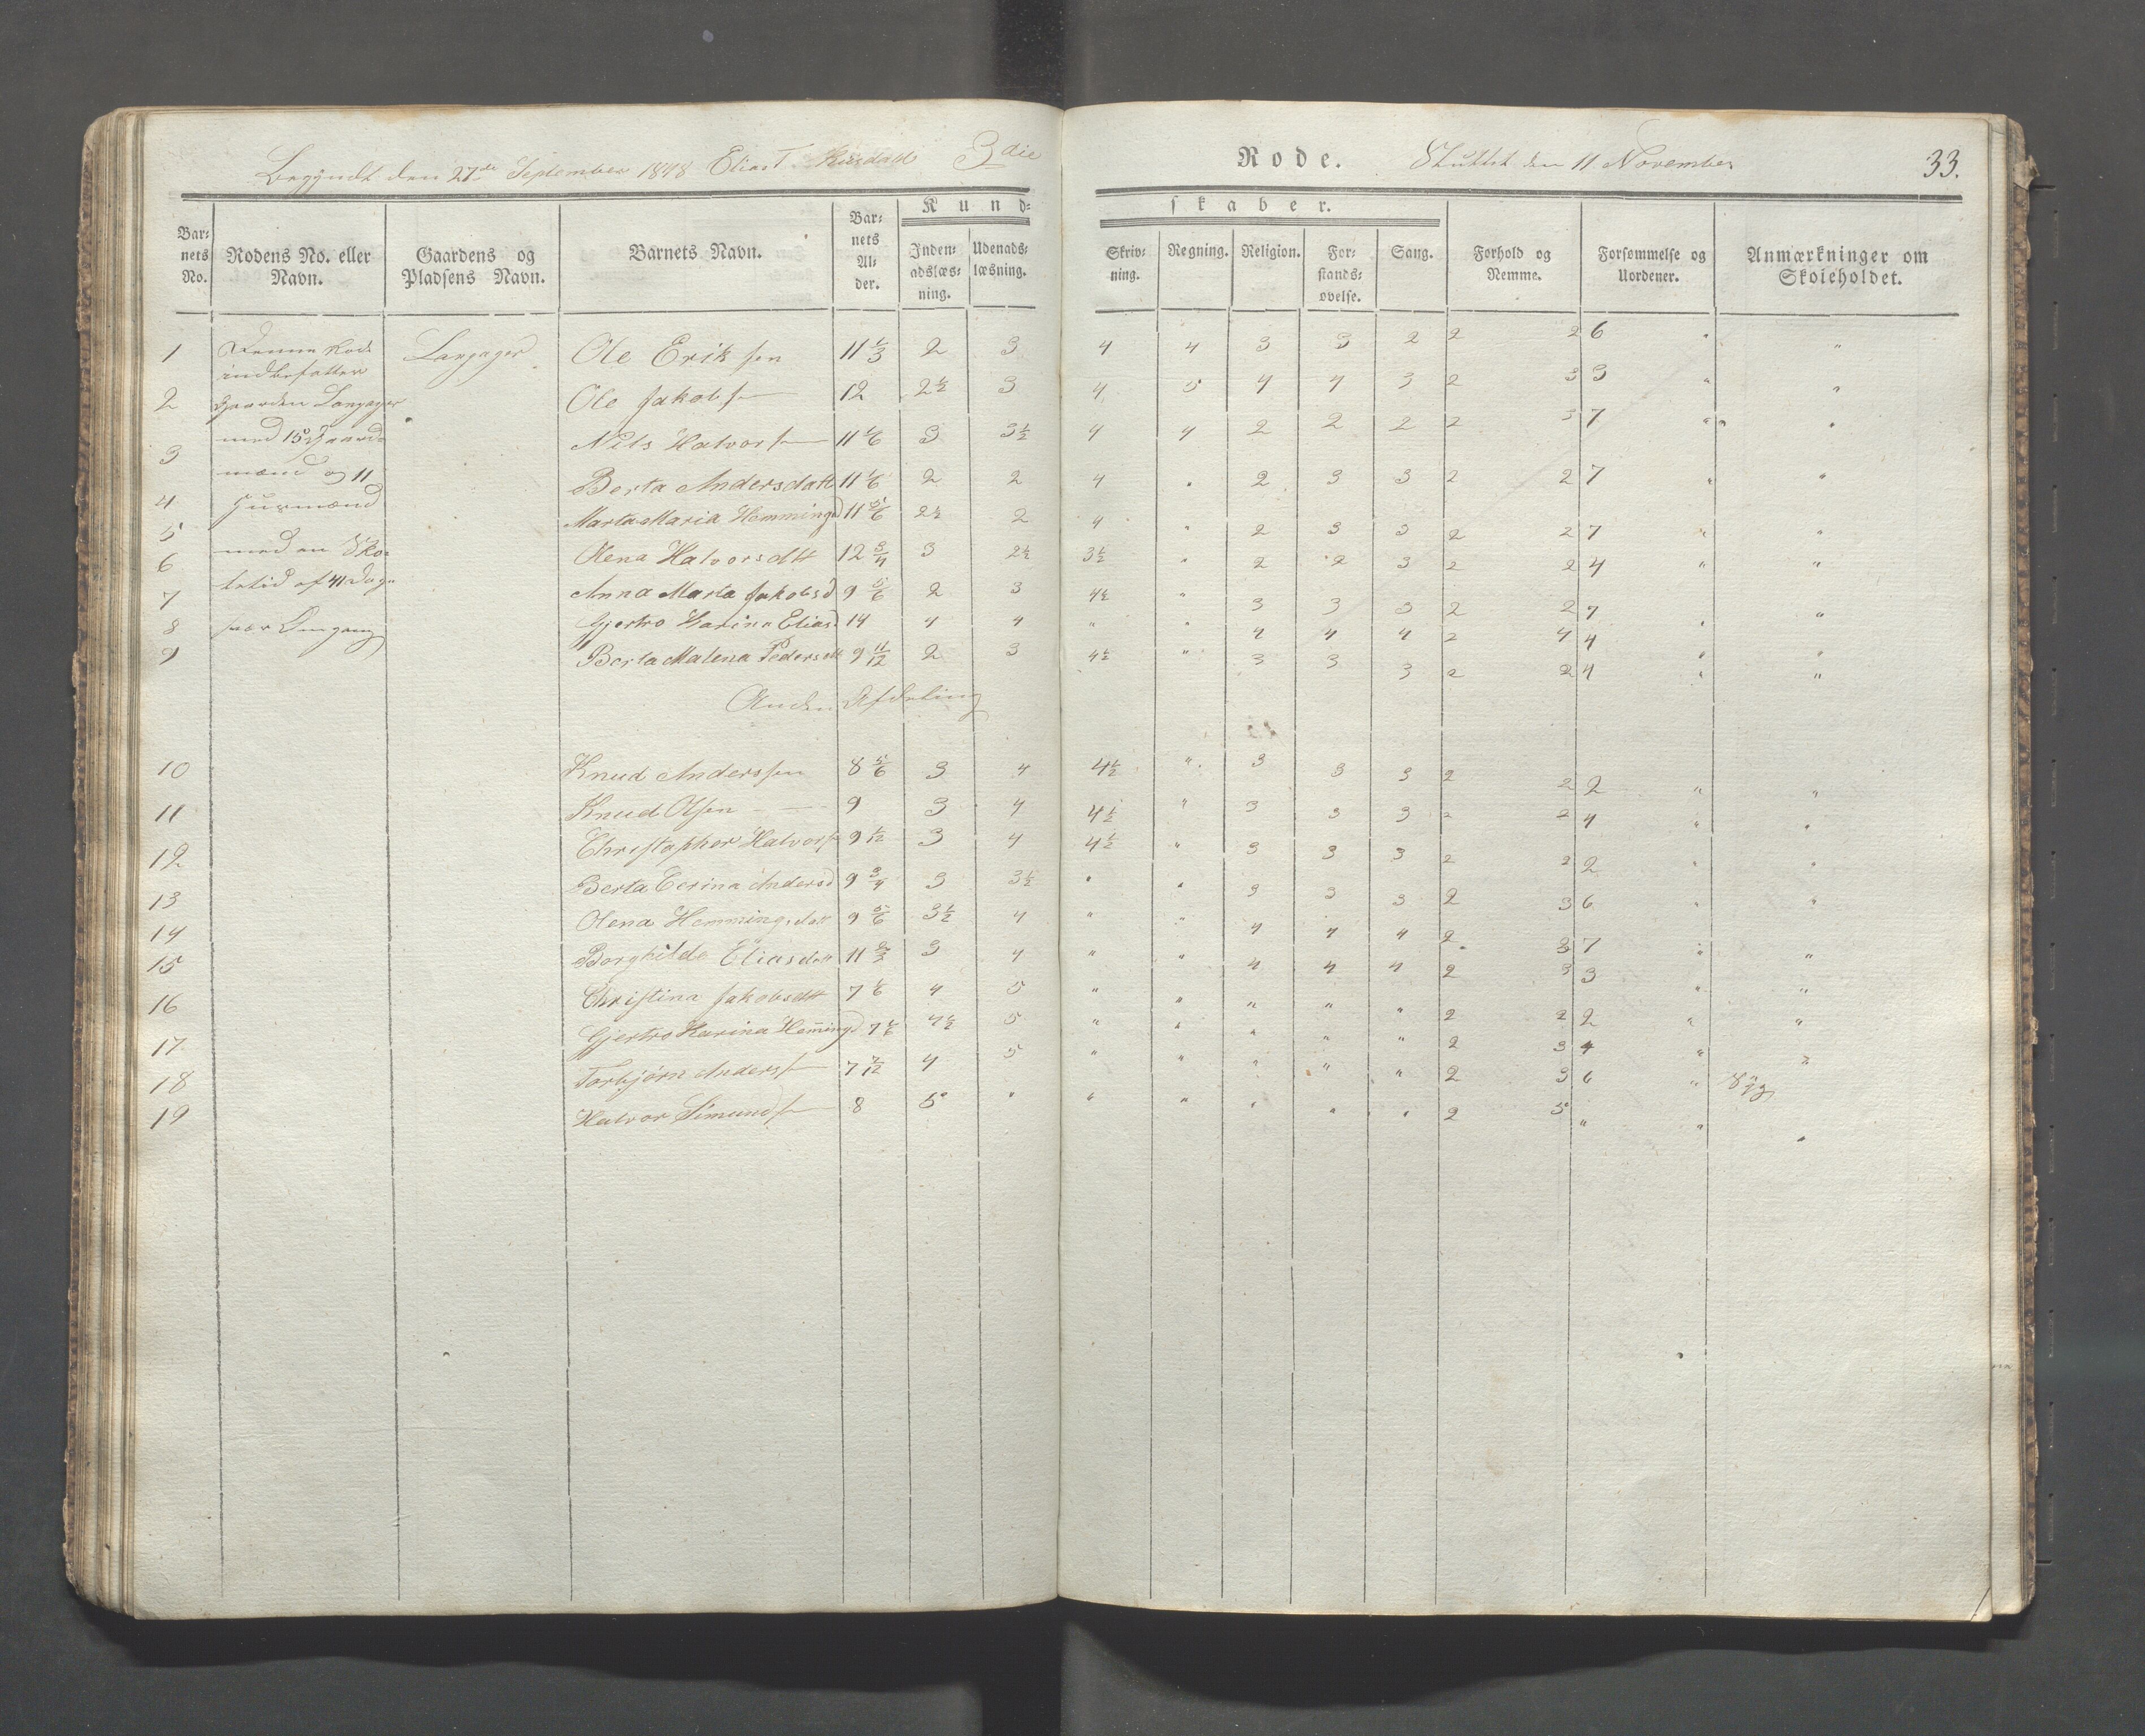 Begyndt den 27de September 1848 Elias T. 3die Rode. Sluttet den 11 November 33.
Barnets No. | Rodens No. eller Navn. | Gaardens og Pladsens Navn. | Barnets Navn. | Barnets Alder. | Kundskaber. Indenadslæsning. | Udenadslæsning. | Skrivning. | Regning. | Religion. | Forstandsøvelse. | Sang. | Forhold og Nemme. | Forsømmelse og Uordener. | Anmærkninger om Skoleholdet.
1 Denne Rode Langager Ole Eriksen 11 1/3 2 3 4 4 3 3 2 2 2 6 " "
indbefatter
2 Gaarden Langager Ole Jakobsen 12 2½ 3 4 5 4 4 3 2 3 3 " "
med 15 Gaard-
3 Nils Halvorsen 11 1/6 3 3½ 4 4 2 2 2 2 3 7 " "
mænd og 11
4 Huusmænd Berta Andersdatt 11 1/6 2 2 4 " 2 3 3 2 2 7 " "
5 Marta Maria Hemmingsd 11 5/6 2½ 2 4 " 2 3 3 2 2 7 " "
6 med en Sko- Olena Halvorsdtt 12 3/4 3 2½ 3½ " 2 2 3 2 2 4 " "
7 letid af 41 Dage Anna Marta Jakobsd 9 5/6 2 3 4½ " 3 3 3 2 2 7 " "
8 hver Omgang Gjertro Karina Eliasd 14 4 4 " " 4 4 4 2 4 4 " "
9 Berta Malena Pedersdtt 9 11/12 2 3 4½ " 3 3 3 2 2 4 " "
Anden Afdeling
10 Knud Anderssen 8 5/6 3 4 4½ " 3 3 3 2 2 2 " "
11 Knud Olsen 9 3 4 4½ " 3 3 3 2 2 4 " "
12 Christopher Halvorsen 9 1/12 3 4 4½ " 3 3 3 2 2 2 " "
13 Berta Serina Andersd 9 3/4 3 3½ " " 3 3 3 2 3 6 " "
14 Olena Hemmingsdatt 9 5/6 3½ 4 " " 4 4 4 2 3 7 " "
15 Borghilde Eliasdatt 11 2/3 3 4 " " 4 4 4 2 3 3 " "
16 Christina Jakobsdtt 7 1/6 4 5 " " " " " 2 2 2 " "
17 Gjertro Karina Hem̄ingsd 7 1/6 4½ 5 " " " " " 2 3 4 " "
18 Torbjørn Anderssen 7 7/12 4 5 " " " " " 2 3 6 " Syg
19 Halvor Simundsen 8 5 " " " " " " 2 5 " " "